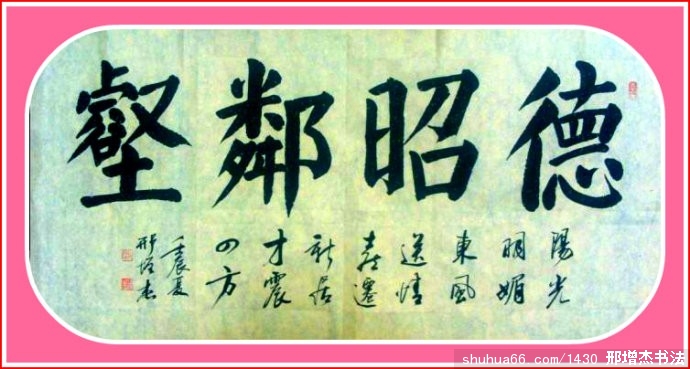 德昭鄰壑
陽光
明媚
東風
送情
喬遷
新居
才震
四方
壬辰夏
邢增杰
shuhua66.com/1430 邢增杰书法